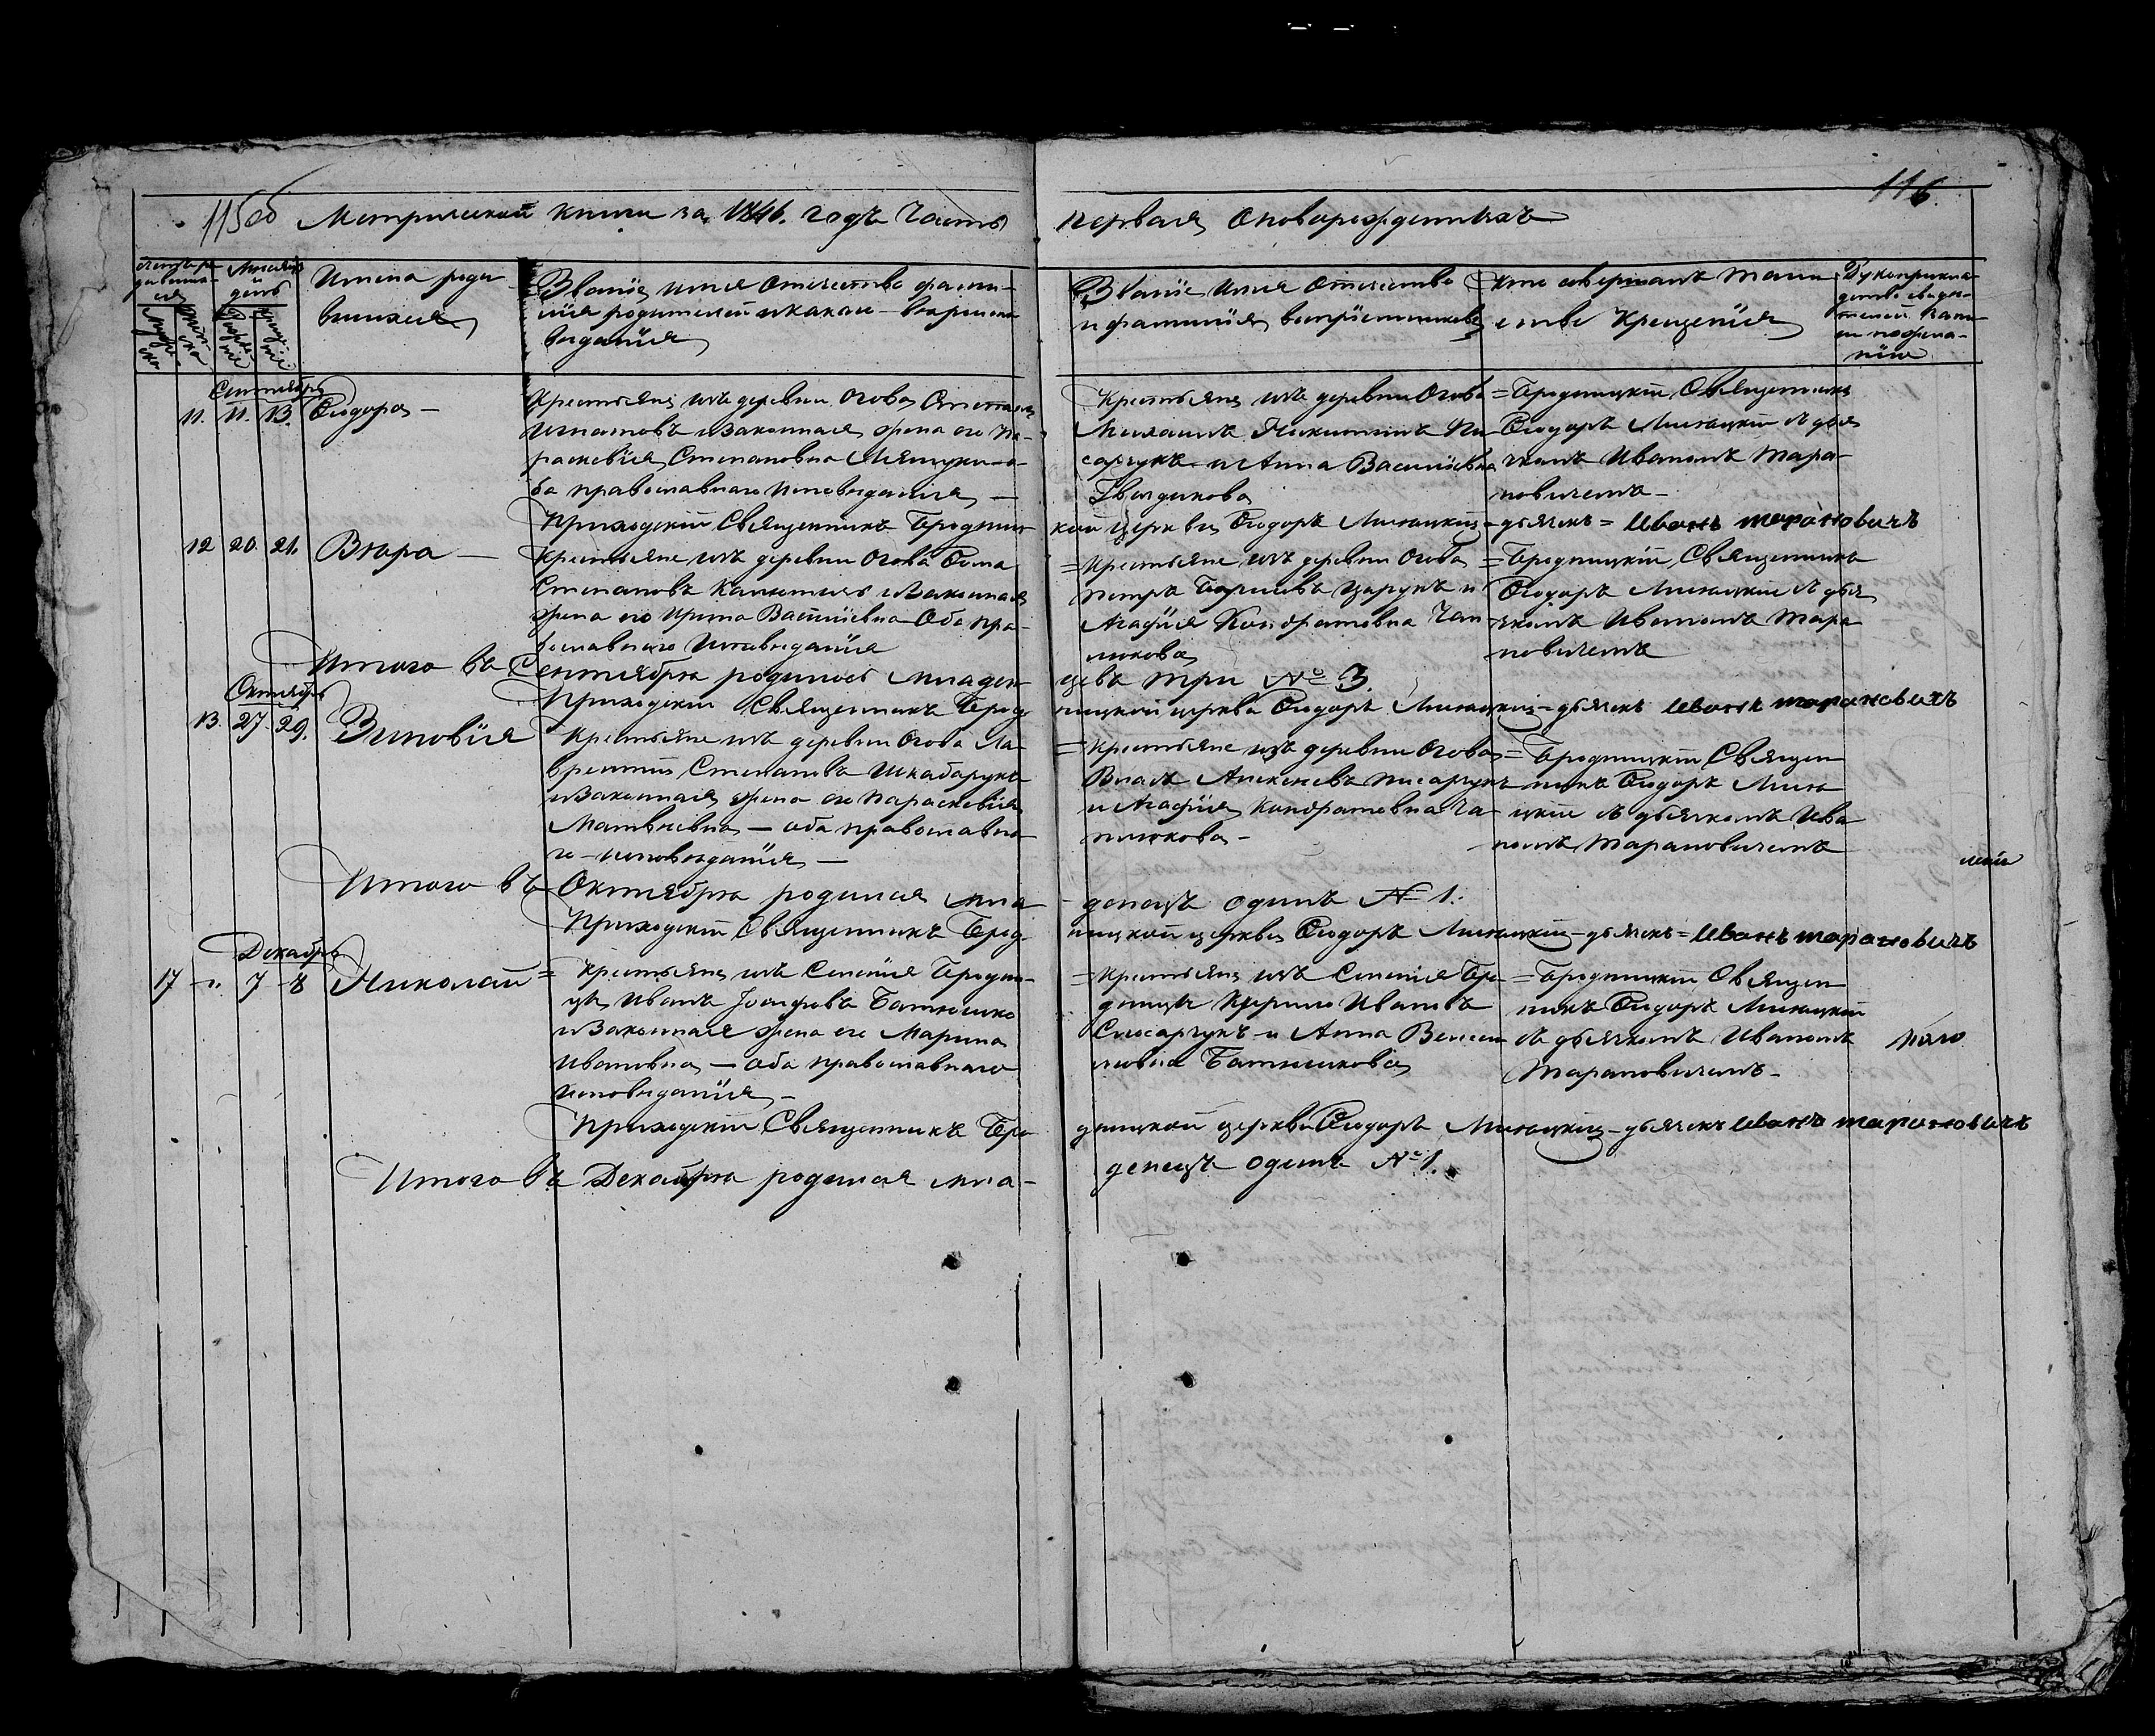 115об Метрической книги за 1846. годъ Часть первая о новорожденныхъ
116
Имена роди-
вшихся
Званіе имя отечество фами-
лія родителей и какаго вѣроиспо-
вѣданія
Званіе имя отечество
и фамилія воспріемниковъ
Кто совершалъ таин-
ство Крещенія
Рукоприкла-
дство свидѣ-
телей
Сентябрь
11. 11. 13. Ѳеодора —
Крестьяне изъ деревни Огова Степанъ
Игнатовъ и Законная жена его Па-
раскевія Степановна
ба православнаго исповѣданія —
Крестьяне изъ деревни Огова
Михаилъ Никитинъ Пи-
сарчукъ и Анна Василіевна
Гвоздикова
= Бродницкій Священникъ
Ѳеодоръ съ дья
чкомъ Иваномъ Тара-
новичемъ —
Приходскій Священникъ Бродниц-
кой Церкви Ѳеодоръ — дьячекъ = Иванъ тарановичъ
12 20. 21. Вѣра —
Крестьяне изъ деревни Огова Ѳома
Степановъ и Законная
жена его Ирина Василіевна Оба пра-
вославнаго исповѣданія
= Крестьяне изъ деревни Огова
Петръ Царукъ и
Агафія Кондратовна Чап-
люкова
= Бродницкій Священникъ
Ѳеодоръ съ дья
чкомъ Иваномъ Тара
новичемъ
Итого въ Сентябрѣ родилось младен-
цевъ три № 3.
Приходскій Священникъ Брод-
ницкой церкви Ѳеодоръ — дьячекъ Иванъ тарановичъ
Октябрь
13. 27. 29. Зиновія
Крестьяне изъ деревни Огова Ла-
врентій Степановъ Шкабарукъ
и Законная жена его Параскевія
Матвѣевна — оба православна-
го — исповѣданія —
= Крестьяне изъ деревни Огова
Власъ Алексеевъ Писарчукъ
и Агафія Кондратовна Ча-
плюкова —
= Бродницкій Священ
никъ Ѳеодоръ
съ дьячкомъ Ива
номъ Тарановичемъ
Итого въ Октябрѣ родился мла-
денецъ одинъ № 1.
Приходскій Священникъ Брод-
ницкой церкви Ѳеодоръ — дьячекъ = Иванъ тарановичъ
Декабрь
17 — 7 — 8 Николай =
Крестьяне изъ Селенія Бродни-
цы Иванъ Іосифовъ Батюшко
и Законная жена его Марина
Ивановна — оба православнаго
исповѣданія —
= Крестьяне изъ Селенія Бро-
дницы Кирило Ивановъ
Слюсарчукъ и Анна
Батюшкова
= Бродницкій Священ
никъ Ѳеодоръ
съ дьячкомъ Иваномъ
Тарановичемъ —
Приходскій Священникъ Бро-
дницкой церкви Ѳеодоръ — дьячекъ Иванъ тарановичъ
Итого въ Декабрѣ родился мла-
денецъ одинъ № 1.